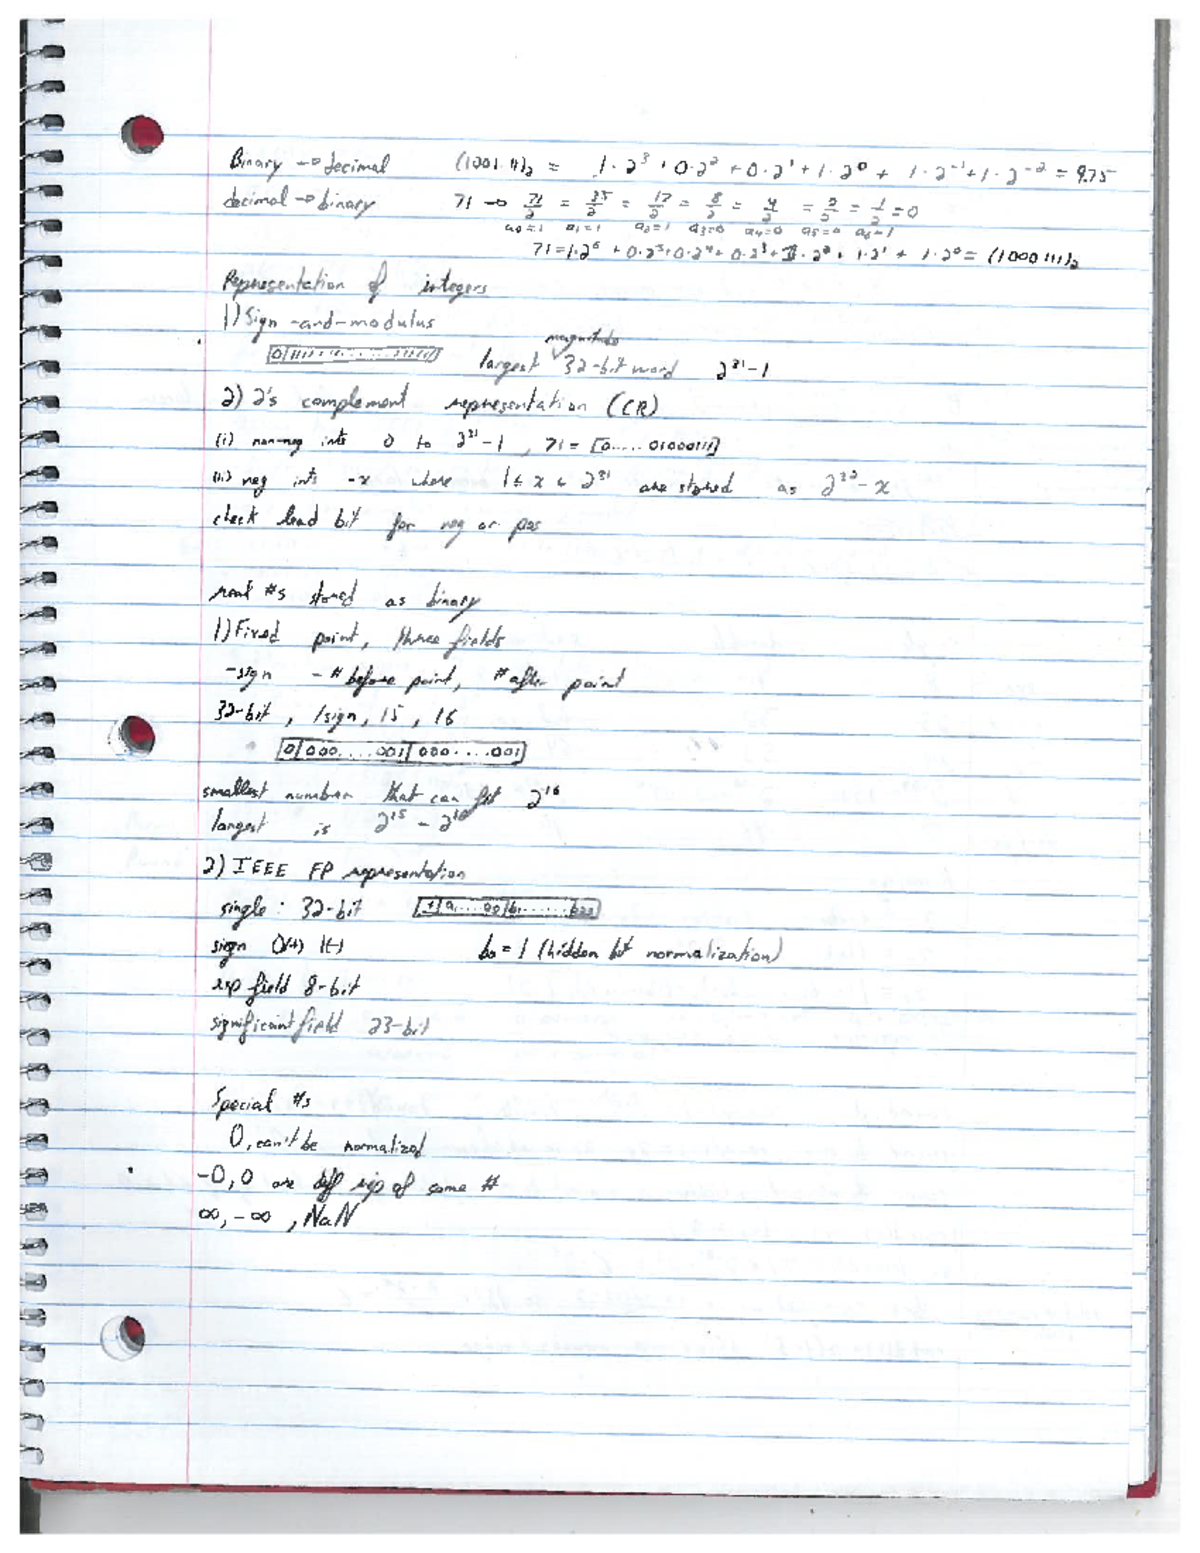 Binary → decimal (1001.11)₂ = 1·2³ + 0·2² + 0·2¹ + 1·2⁰ + 1·2⁻¹ + 1·2⁻² = 9.75
decimal → binary 71 → 71/2 = 35/2 = 17/2 = 8/2 = 4/2 = 2/2 = 1/2 = 0
a₀=1 a₁=1 a₂=1 a₃=0 a₄=0 a₅=0 a₆=1
71 = 1·2⁶ + 0·2⁵ + 0·2⁴ + 0·2³ + 1·2² + 1·2¹ + 1·2⁰ = (1000111)₂
Representation of integers
1) Sign-and-modulus
magnitude
largest 32-bit word 2³¹-1
2) 2's complement representation (CR)
(i) non-neg ints 0 to 2³¹-1, 71 = [0.....01000111]
(ii) neg ints -x where 1 ≤ x ≤ 2³¹ are stored as 2³²-x
check lead bit for neg or pos
real #s stored as binary
1) Fixed point, three fields
-sign - # before point, # after point
32-bit, 1 sign, 15, 16
0|000....001|000....001
smallest number that can fit 2¹⁶
largest is 2¹⁵ -
2) IEEE FP representation
single: 32-bit
sign 0(+) 1(-) b₀ = 1 (hidden bit normalization)
exp field 8-bit
significant field 23-bit
Special #s
0, can't be normalized
-0, 0 are diff rep of same #
∞, -∞, NaN